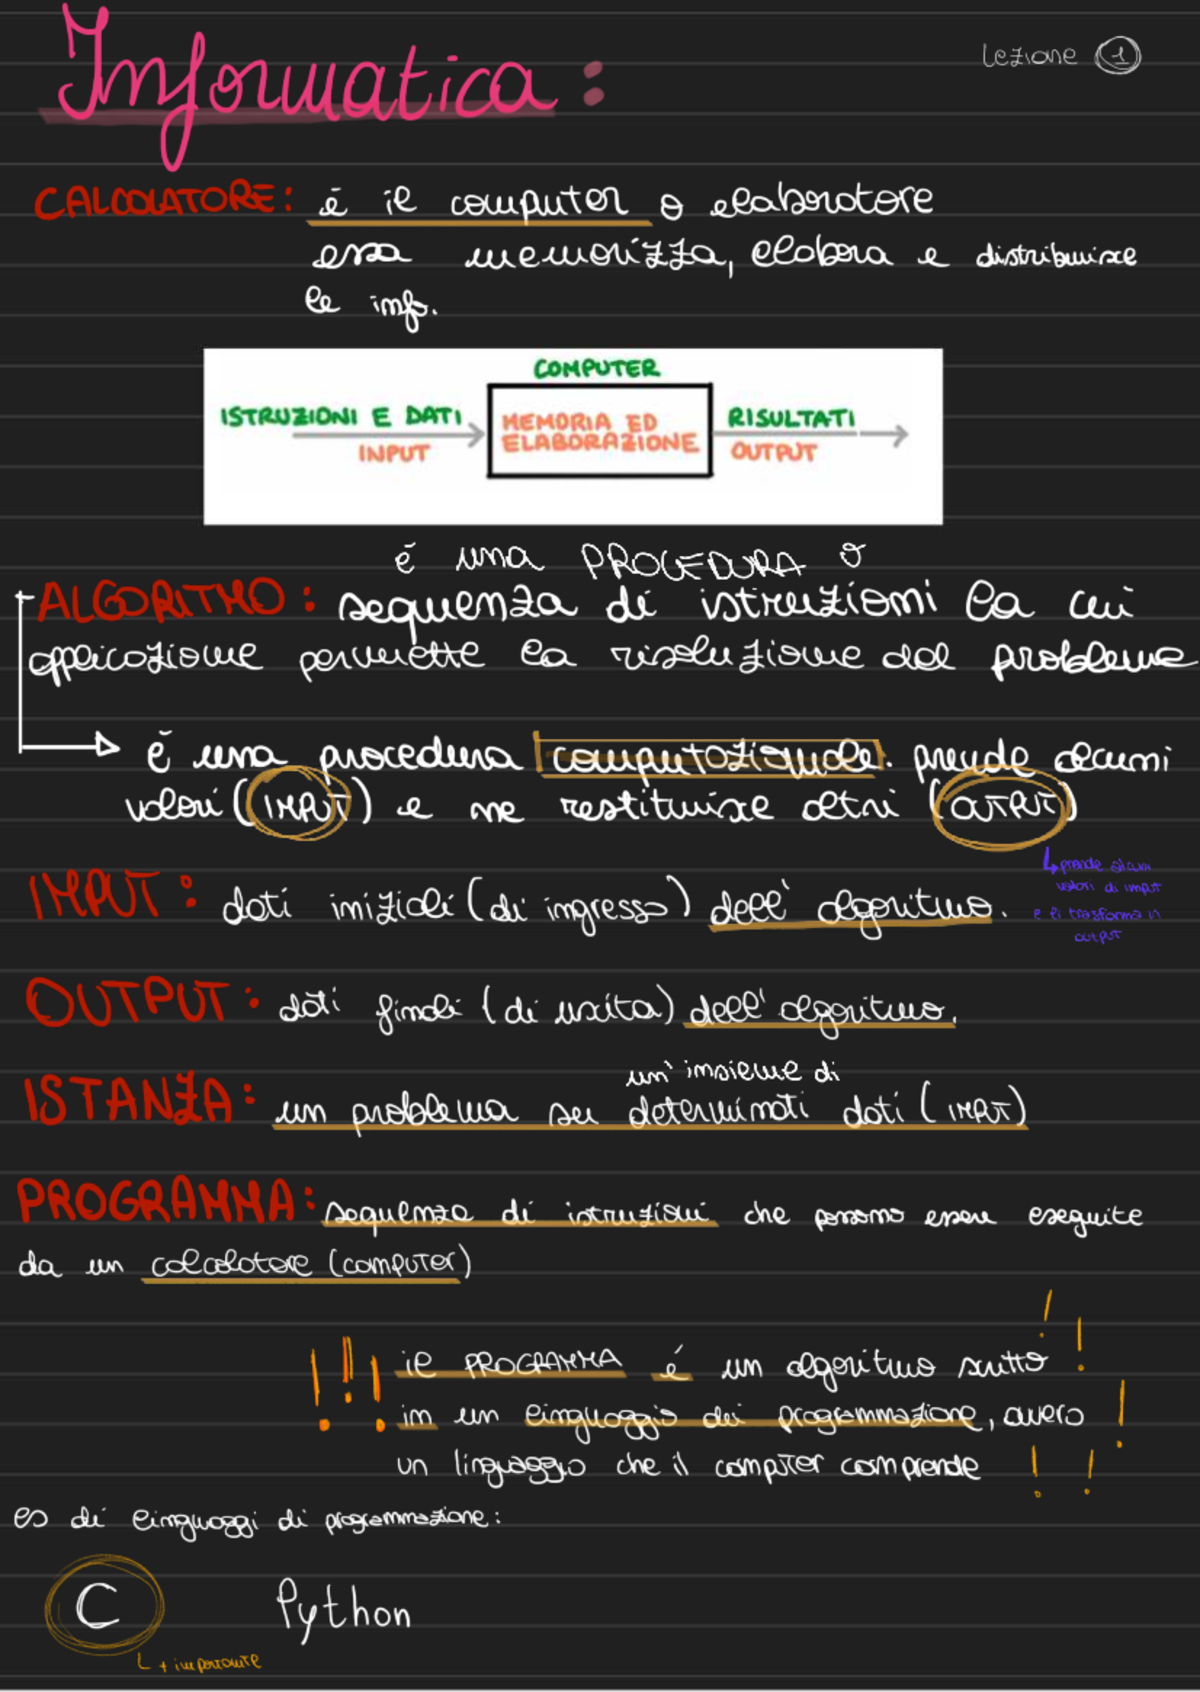 Informatica:
Lezione 1
CALCOLATORE: é il computer o elaboratore
essa memorizza, elabora e distribuisce
le info.
COMPUTER
ISTRUZIONI E DATI
INPUT
MEMORIA ED
ELABORAZIONE
RISULTATI
OUTPUT
é una PROCEDURA o
ALGORITMO: sequenza di istruzioni la cui
applicazione permette la risoluzione del problema
é una procedura computazionale. prende alcuni
valori (INPUT) e ne restituisce altri (OUTPUT)
prende alcuni
valori di input
e li trasforma in
output
INPUT: dati iniziali (di ingresso) dell' algoritmo.
OUTPUT: dati finali (di uscita) dell' algoritmo.
un' insieme di
ISTANZA: un problema su determinati dati (INPUT)
PROGRAMMA: sequenza di istruzioni che possono essere eseguite
da un calcolatore (computer)
!!! il PROGRAMMA é un algoritmo scritto !!
in un linguaggio di programmazione, ovvero !
un linguaggio che il computer comprende !!
es di linguaggi di programmazione:
C Python
+ importante